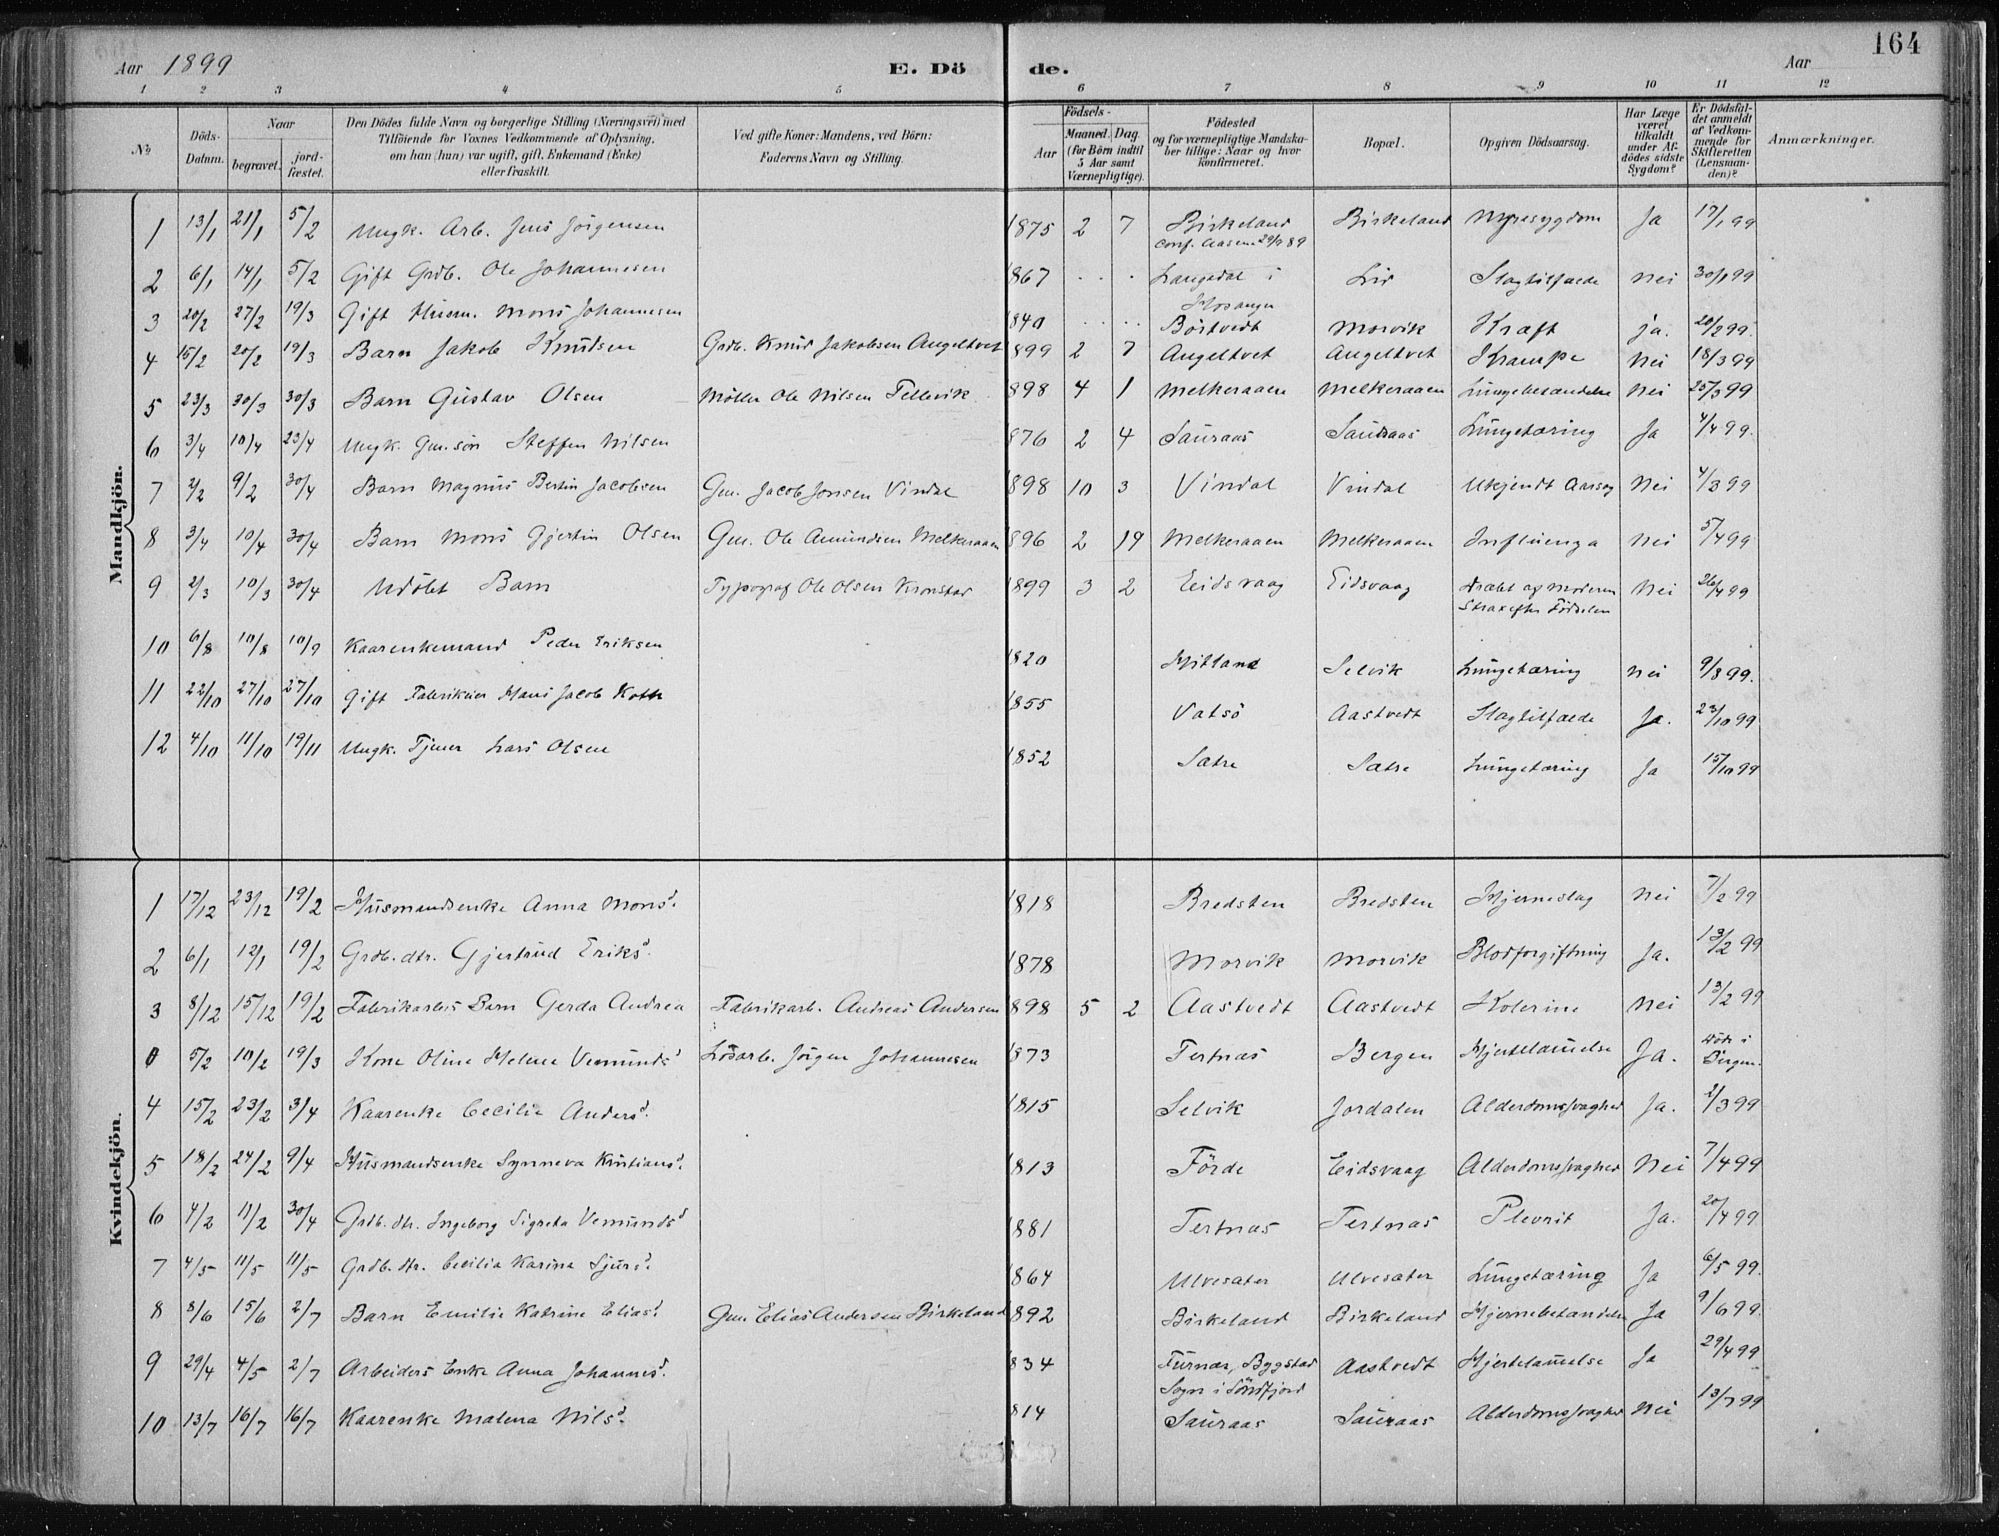 164
Aar 1899
E. Döde.
Aar
1 2 3 4 5 6 7 8 9 10 11 12
No
Döds-Datum.
Naar
begravet.
jord-fæstet.
Den Dödes fulde Navn og borgerlige Stilling (Næringsvei) med
Tilföiende for Voxnes Vedkommende af Oplysning,
om han (hun) var ugift, gift, Enkemand (Enke)
eller fraskilt.
Ved gifte Koner: Mandens, ved Börn:
Faderens Navn og Stilling.
Födsels-
Aar
Maaned. Dag.
(for Börn indtil
5 Aar samt
Værnepligtige).
Födested
og for værnepligtige Mandska-
ber tillige: Naar og hvor
konfirmeret.
Bopæl.
Opgiven Dödsaarsag.
Har Læge
været
tilkaldt
under Af-
dödes sidste
Sygdom?
Er Dödsfal-
det anmeldt
af Vedkom-
mende for
Skifteretten
(Lensman-
den)?
Anmærkninger.
Mandkjön.
1 13/1 21/1 5/2 Ungk. Arb. Jens Jörgensen 1875 2 7 Birkeland Birkeland Nyresygdom Ja 17/1 99
conf. Aasene 29/9 89
2 6/1 14/1 5/2 Gift Grdb. Ole Johannesen 1867 . . . Langedal i Lid Slagtilfælde Nei 30/1 99
Hosanger
3 20/2 27/2 19/3 Gift Husm. Mons Johannesen 1840 . . . . Börtvedt Morvik Kræft ja. 20/2 99.
4 15/2 20/2 19/3 Barn Jakob Knudsen Grdb. Knud Jakobsen Angeltvet 1899 2 7 Angeltvet Angeltvet Krampe Nei 18/3 99
5 23/3 30/3 30/3 Barn Gustav Olsen Möller Ole Nilsen Tellevik 1898 4 1 Melkeraaen Melkeraaen Lungebetændelse Nei 25/3 99
6 3/4 10/4 23/4 Ungk. Gm.sön Steffen Nilsen 1876 2 4 Sauraas Sauraas Lungetæring Ja 4/4 99.
7 2/2 9/2 30/4 Barn Magnus Bertin Jacobsen Gm. Jacob Jonsen Vindal 1898 10 3 Vindal Vindal Ukjendt Aarsag Nei 4/3 99
8 3/4 10/4 30/4 Barn Mons Gjertin Olsen Gm. Ole Amundsen Melkeraaen 1896 2 19 Melkeraaen Melkeraaen Influenza Nei 5/4 99
9 2/3 10/3 30/4 Udöbt Barn Typograf Ole Olsen Kronstad 1899 3 2 Eidsvaag Eidsvaag Dræbt af Moderen Nei 26/4 99
Strax efter Födselen
10 6/8 10/8 10/9 Kaarenkemand Peder Eriksen 1820 Hitland Selvik Lungetæring Nei 9/8 99.
11 22/10 27/10 27/10 Gift Fabrikeier Hans Jacob Koth 1855 Vatsö Aastvedt Slagtilfælde Ja. 23/10 99
12 4/10 11/10 19/11 Ungk. Tjener Lars Olsen 1852 Sætre Sætre Lungetæring Ja 15/10 99
Kvindekjön.
1 17/12 23/12 19/2 Husmandsenke Anna Monsd. 1818 Bredsten Bredsten Hjerneslag Nei 7/2 99
2 6/1 12/1 19/2 Grdb.dtr. Gjertrud Eriksd. 1878 Morvik Morvik Blodforgiftning Ja. 13/2 99
3 8/12 15/12 19/2 Fabrikarbs Barn Gerda Andrea Fabrikarb. Andreas Andersen 1898 5 2 Aastvedt Aastvedt Kolerine Nei 13/2 99
0 5/2 10/2 19/3 Kone Oline Helene Vemundsd Lösarb. Jörgen Johannesen 1873 Tertnæs Bergen Hjertelamelse Ja. död i
Bergen.
4 15/2 23/2 3/4 Kaarenke Cecilia Andersd. 1815 Selvik Jordalen Alderdomssvaghed Ja. 2/3 99
5 18/2 24/2 9/4 Husmandsenke Synneva Kristiansd. 1813 Förde Eidsvaag Alderdomssvaghed Nei 7/4 99
6 4/2 11/2 30/4 Grdb. dtr. Ingeborg Sigreta Vemundsd 1881 Tertnæs Tertnæs Plevrit Ja. 20/4 99.
7 4/5 11/5 11/5 Grdb. dtr. Cecilia Karina Sjursd. 1864 Ulvesæter Ulvesæter Lungetæring Ja 6/5 99.
8 8/6 15/6 2/7 Barn Emilie Katrine Eliasd. Gm. Elias Andersen Birkeland 1892 Birkeland Birkeland Hjernebetændelse Ja 9/6 99.
9 29/4 4/5 2/7 Arbeiders Enke Anna Johannesd. 1834 Furnæs, Bygstad Aastvedt Hjertelamelse Ja 29/4 99
Sogn i Söndfjord
10 13/7 16/7 16/7 Kaarenke Malena Nilsd. 1814 Sauraas Sauraas Alderdomssvaghed Nei 13/7 99